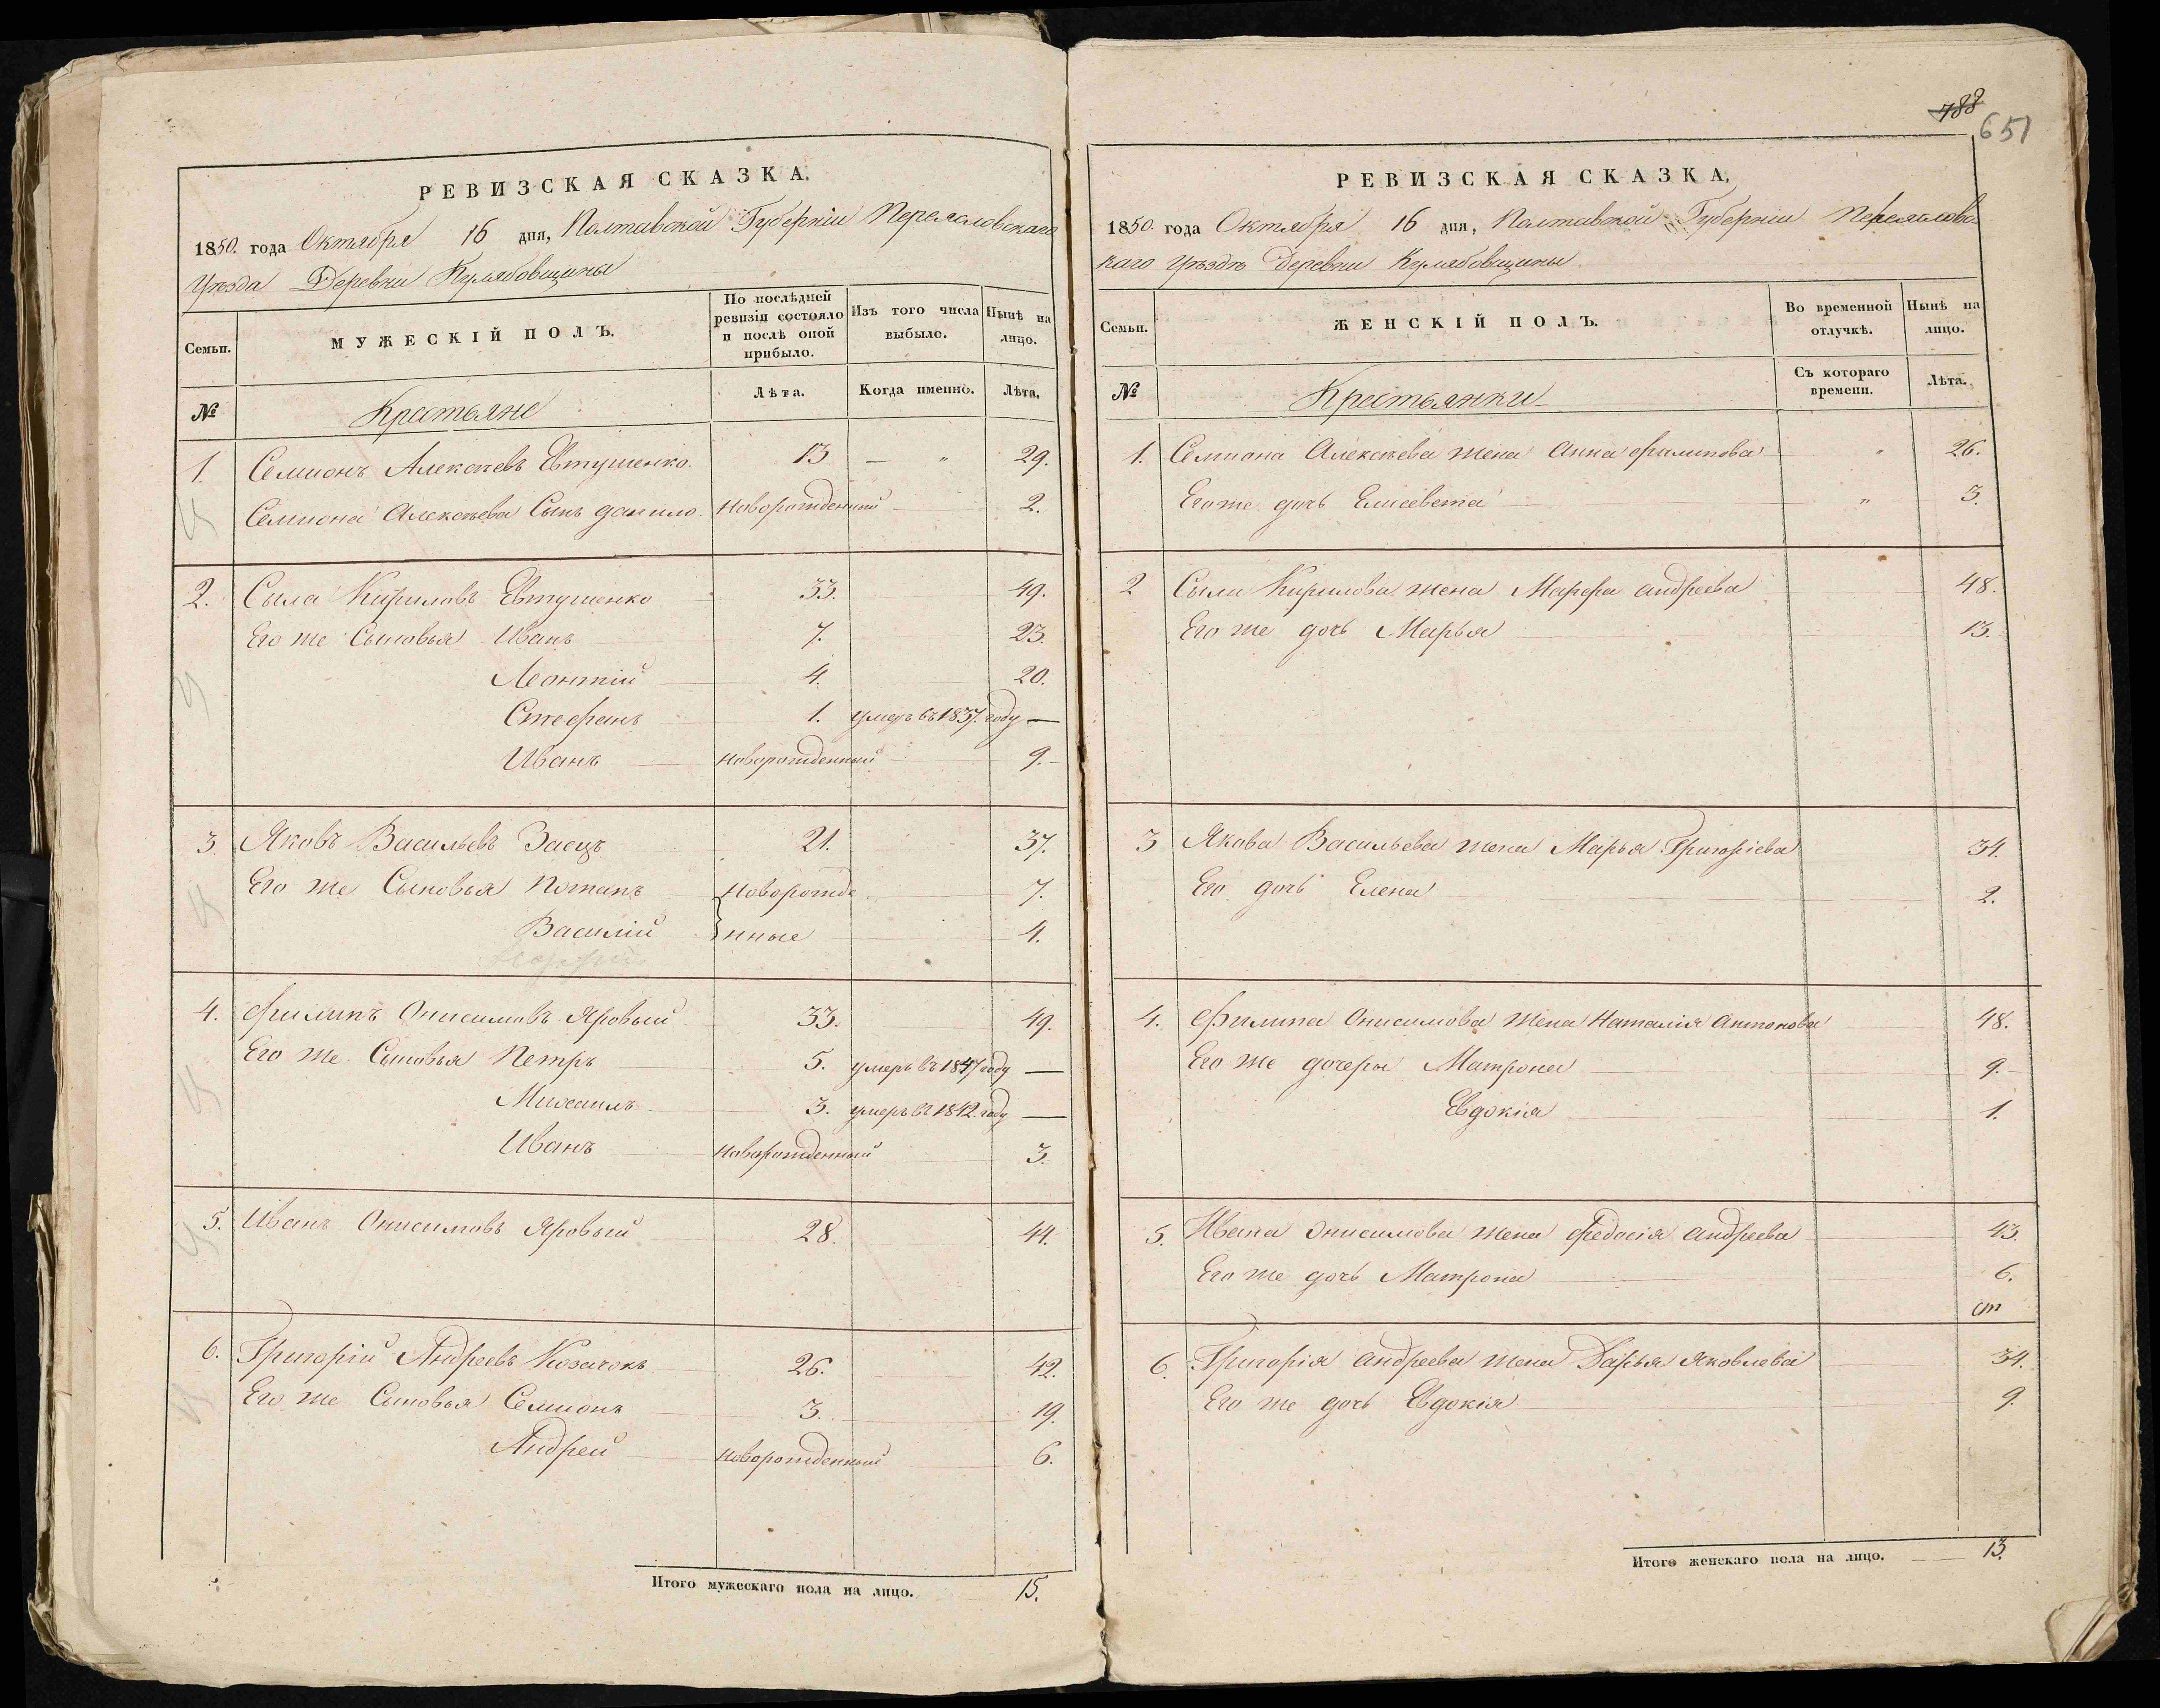 788
651
РЕВИЗСКАЯ СКАЗКА.
1850. года Октября 16 дня, Полтавской Губерніи Переясловскаго
Уезда Деревни Кулябовщины
Семьи. МУЖЕСКІЙ ПОЛЪ. По послѣдней ревизіи состояло и послѣ оной прибыло. Изъ того числа выбыло. Нынѣ на лицо.
№ Крестьяне Лѣта. Когда именно. Лѣта.
1. Семионъ Алексѣевъ Евтушенко. 13 — " 29.
Семиона Алексѣева Сынъ данило. новорожденный 2.
2. Сыла Кириловъ Евтушенко 33. 49.
Его же Сыновья Иванъ 7. 23.
Леонтій 4. 20.
Стефанъ 1. умеръ въ 1837. году —
Иванъ новорожденный 9.
3. Яковъ Васильевъ Заецъ 21. 37.
Его же Сыновья Потапъ новорожде 7.
Василій нные 4.
4. Филипъ Онисимовъ Яровый 33. 49.
Его же Сыновья Петръ 5. умеръ въ 1847 году —
Михаилъ 3. умеръ въ 1842. году —
Иванъ новорожденный 3.
5. Иванъ Онисимовъ Яровый 28. 44.
6. Григорій Андреевъ Козачокъ 26. 42.
Его же Сыновья Семионъ 3. 19.
Андрей новорожденный 6.
Итого мужескаго пола на лицо. 15.
РЕВИЗСКАЯ СКАЗКА.
1850. года Октября 16 дня, Полтавской Губерніи Переяслово
каго Уѣздѣ деревни Кулябовщины
Семьи. ЖЕНСКІЙ ПОЛЪ. Во временной отлучкѣ. Нынѣ на лицо.
№ Крестьянки Съ котораго времени. Лѣта.
1. Семиона Алексѣева жена Анна Филипова " 26.
Его же дочь Елисевета " 3.
2 Сыли Кирилова жена Марфа андреева 48.
Его же дочь Марья 13.
3 Якова Васильева жена Марья Григоріева 34.
Его дочь Елена 2.
4. Филипа Онисимова жена Наталія Антонова 48.
Его же дочеры Матрона 9.
Евдокія 1.
5. Ивана Онисимова жена Федосія андреева 43.
Его же дочь Матрона 6.
ст
6. Григорія андреева жена Дарья Яковлева 34.
Его же дочь Евдокія 9.
Итого женскаго пола на лицо. 13.